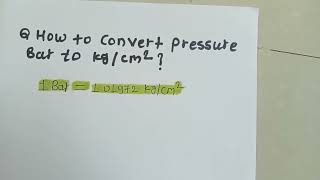 Q How to convert pressure
Bar to kg/cm²?
1 Bar = 1.01972 kg/cm²